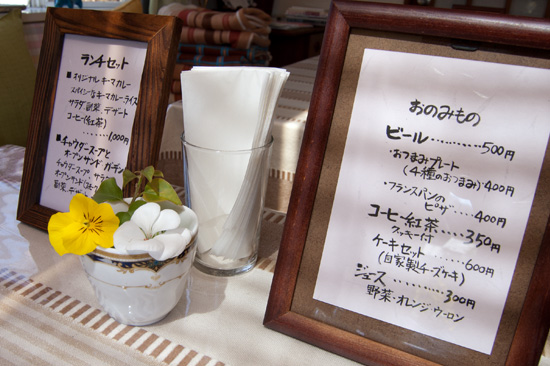 ランチセット
■オリジナルキーマカレー
スパイシーなキーマカレー、ライス
サラダ、試菜、デザート
コーヒー(紅茶)
‥‥‥1,000円
■チャウダースープと
オープンサンド ガーデン
チャウダースープ、サラダ
オープンサンド
野菜、チーズ
おのみもの
ビール‥‥‥500円
・おつまみプレート
(4種のおつまみ)400円
・フランスパンの
ピザ‥‥400円
コーヒー紅茶‥‥350円
クッキー付
ケーキセット‥‥600円
(自家製チーズケーキ)
ジュース‥‥‥300円
野菜・オレンジ・ウーロン